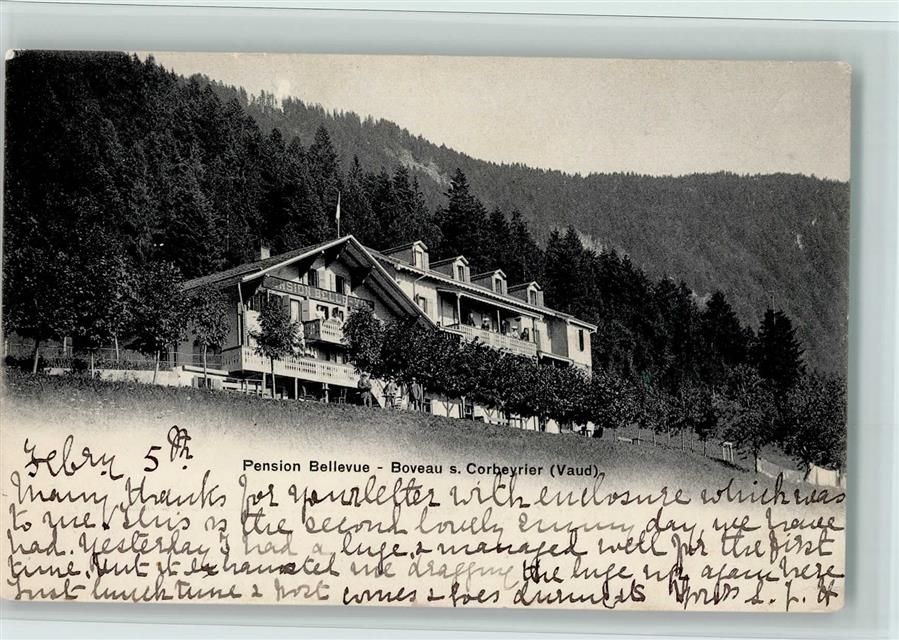 PENSION BELLEVUE
Febry 5th
Pension Bellevue - Boveau s. Corbeyrier (Vaud)
Many thanks for your letter with enclosure which was
to me. This is the second lovely sunny day we have
had. Yesterday I had a luge & managed well for the first
time, but it exhausted me dragging the luge up again here
Just lunch time & post comes & goes during it. Yours